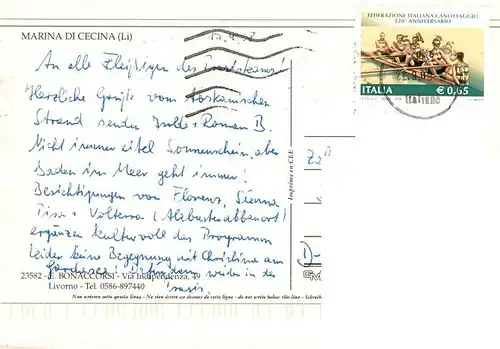 MARINA DI CECINA (Li)
FEDERAZIONE ITALIANA CANOTTAGGIO
120° ANNIVERSARIO
ITALIA € 0,65
Italiane
An alle Fleißigen des
Herzliche Grüße vom Toskanischen
Strand senden + Roman B.
Nicht immer eitel Sonnenschein, aber
Baden im Meer geht immer!
Besichtigungen von Florenz, Sienna
Pisa + Volterra (Alabasterabbauort)
ergänzen kulturvoll das Programm
Leider keine Begegnung mit Christina am
wieder in der
Praxis.
23582 - E. BONACCORSI - Via Indipendenza, 49
Livorno - Tel. 0586-897440
Non scrivere sotto questa linea - Ne rien écrire au dessous de cette ligne - do not write below this line - Schreib
Imprimé en CEE
D-